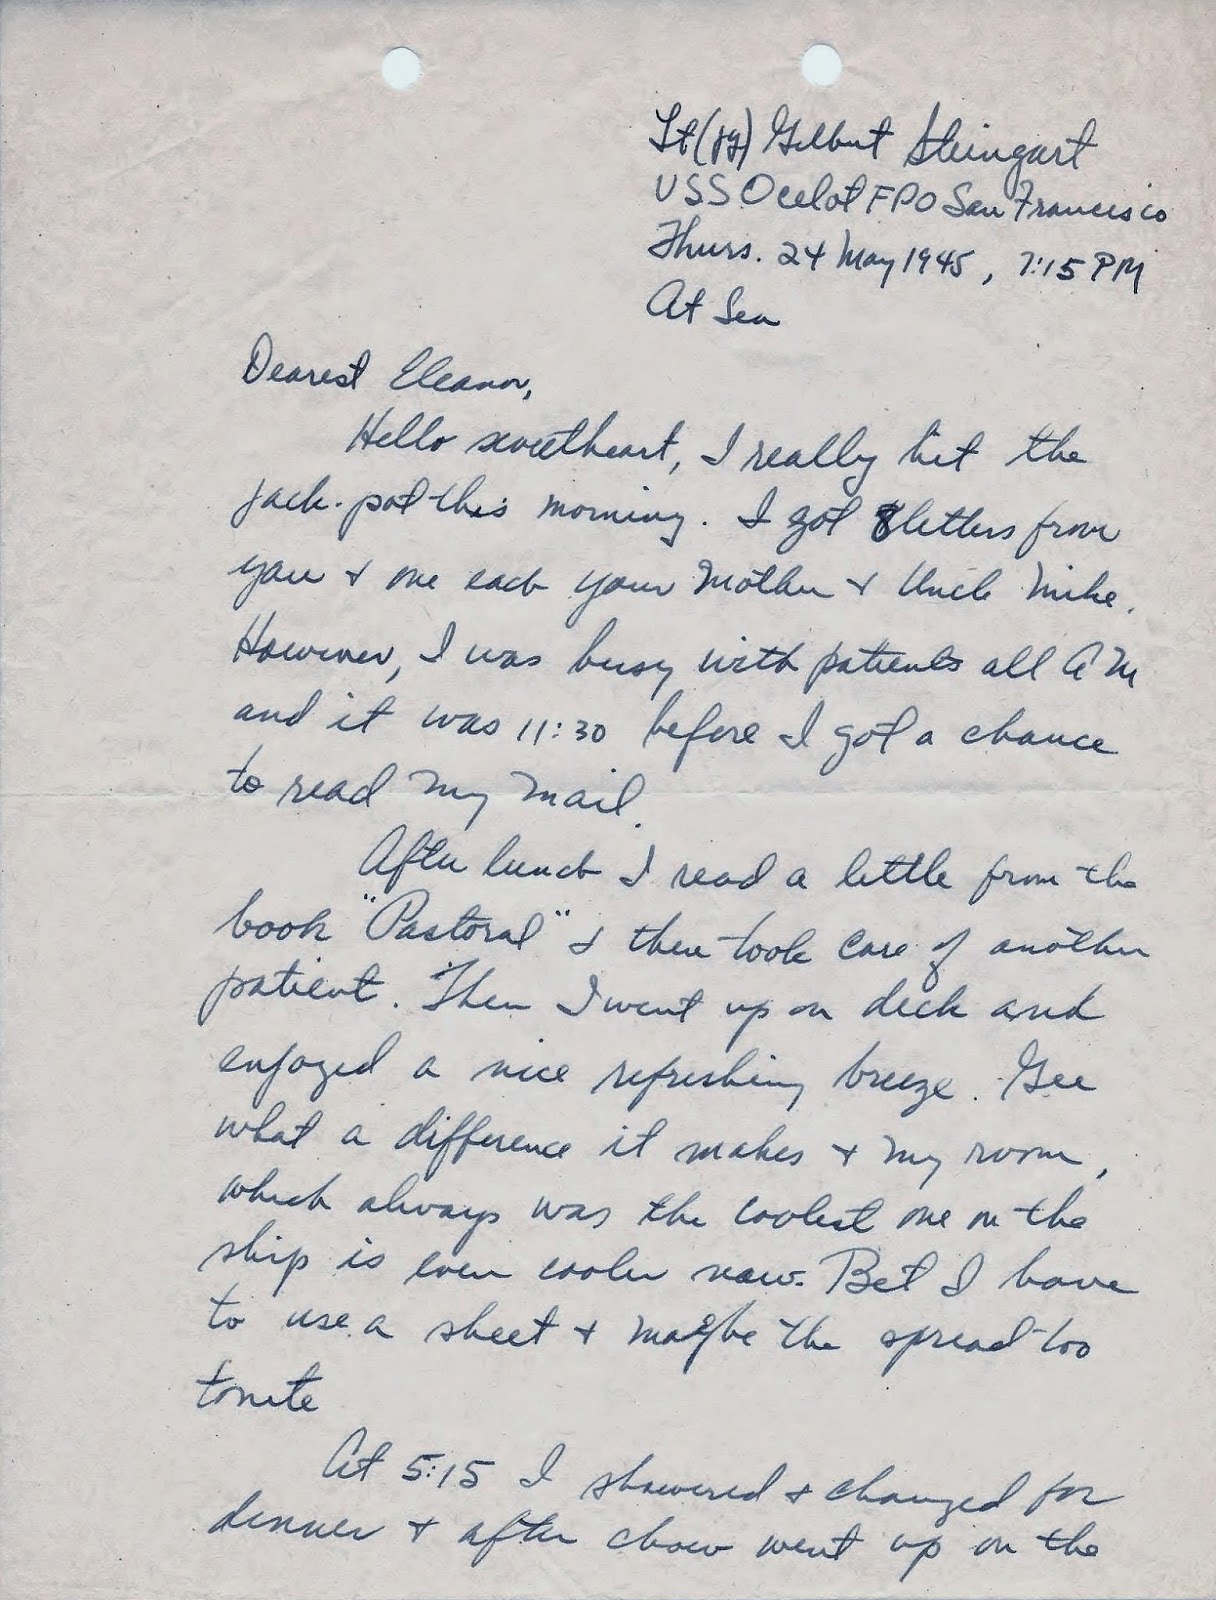 Lt(jg) Gilbert Steingart
USS Ocelot FPO San Francisco
Thurs. 24 May 1945, 7:15 PM
At Sea
Dearest Eleanor,
Hello sweetheart, I really hit the
jack-pot this morning. I got 8 letters from
you + one each your Mother + Uncle Mike.
However, I was busy with patients all AM
and it was 11:30 before I got a chance
to read my mail.
After lunch I read a little from the
book "Pastoral" & then took care of another
patient. Then I went up on deck and
enjoyed a nice refreshing breeze. Gee
what a difference it makes + my room,
which always was the coolest one on the
ship is even cooler now. Bet I have
to use a sheet + maybe the spread too
tonite
At 5:15 I showered + changed for
dinner + after chow went up on the